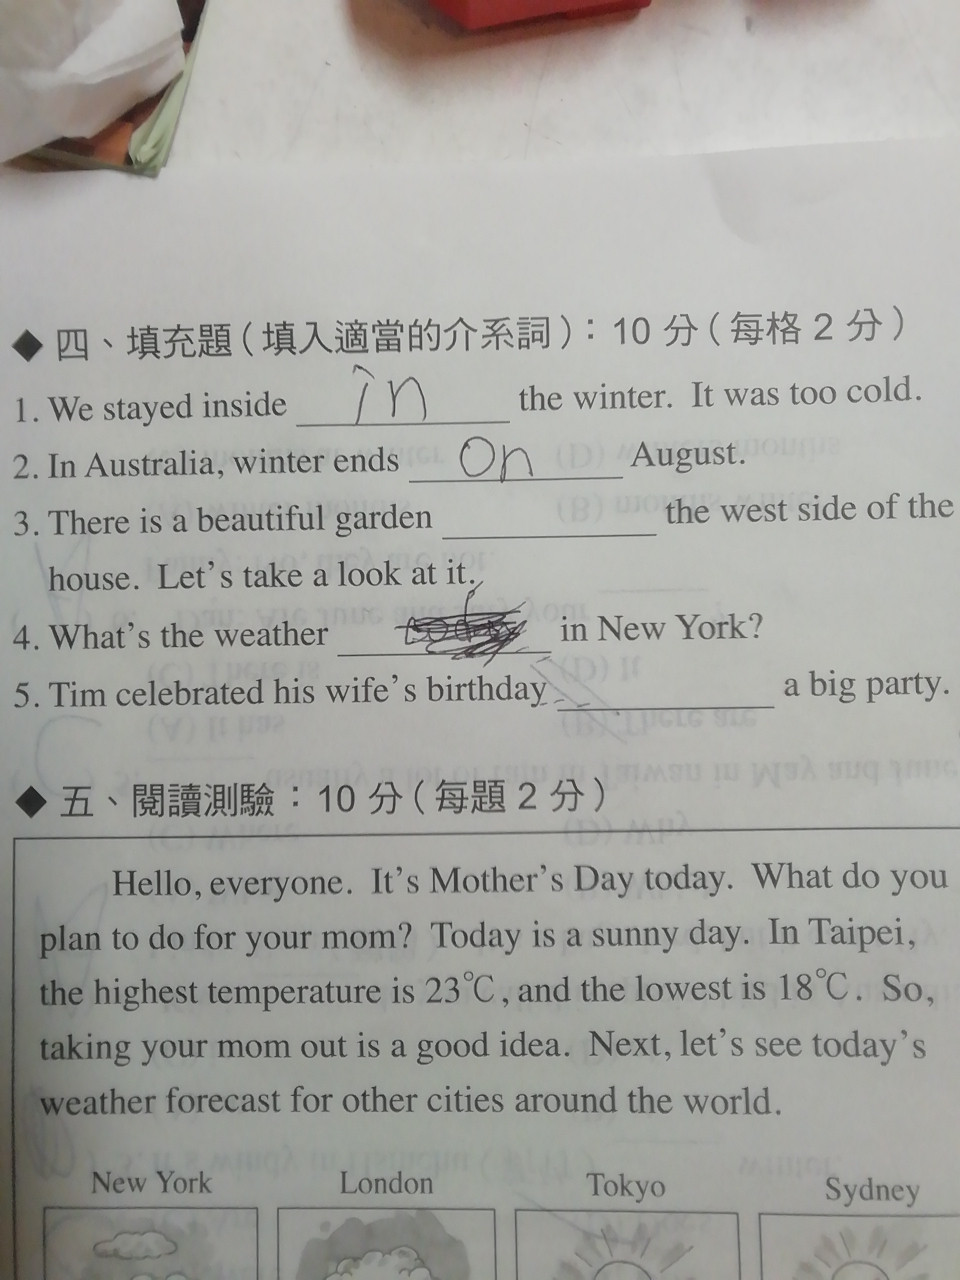 ◆ 四、填充題(填入適當的介系詞)：10 分(每格 2 分)
1. We stayed inside in the winter. It was too cold.
2. In Australia, winter ends on August.
3. There is a beautiful garden ______ the west side of the
house. Let's take a look at it.
4. What's the weather ______ in New York?
5. Tim celebrated his wife's birthday ______ a big party.
◆ 五、閱讀測驗：10 分(每題 2 分)
Hello, everyone. It's Mother's Day today. What do you
plan to do for your mom? Today is a sunny day. In Taipei,
the highest temperature is 23℃, and the lowest is 18℃. So,
taking your mom out is a good idea. Next, let's see today's
weather forecast for other cities around the world.
New York London Tokyo Sydney